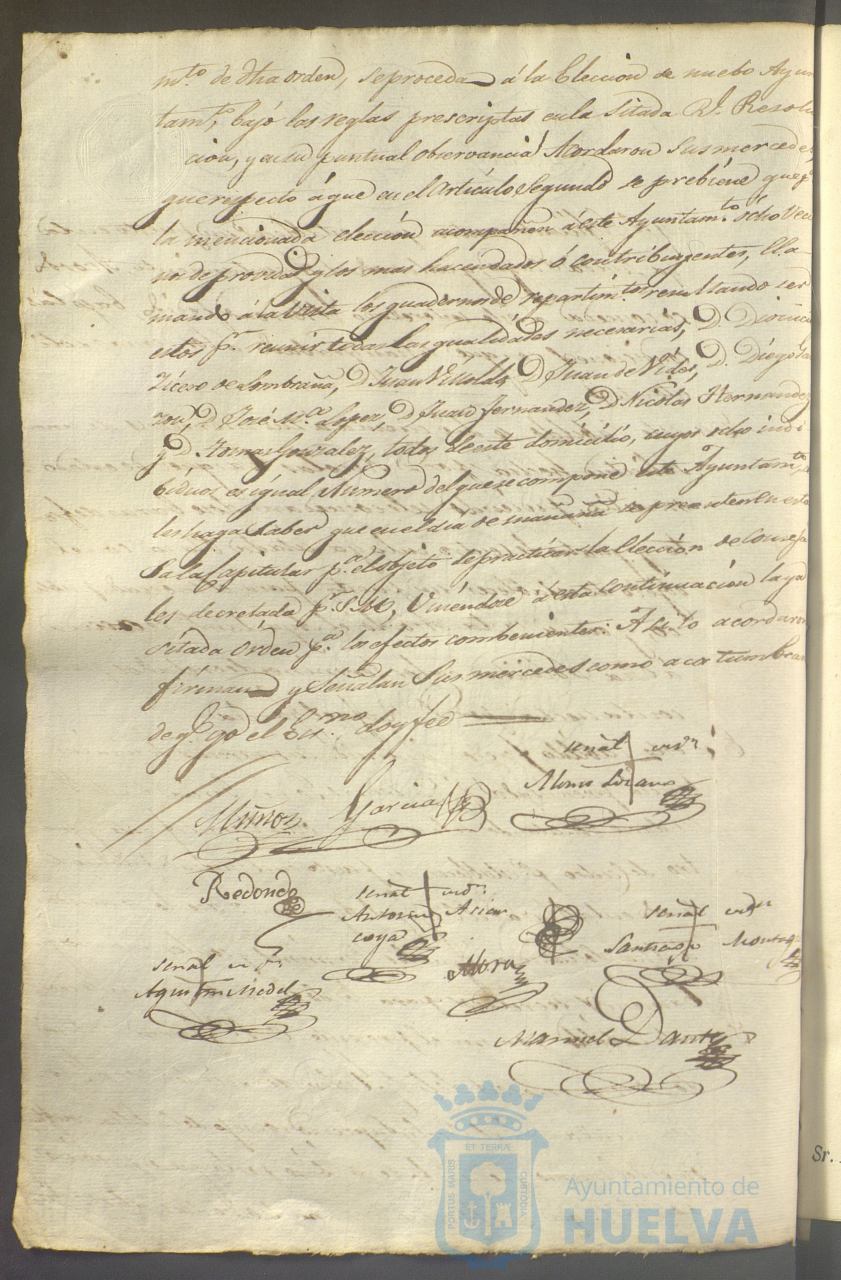 mto. de dha orden, se proceda á la Eleccion de nuebo Ayun
tamto. bajo las reglas prescriptas en la Sitada Rl. Resolu
cion, y en su puntual observancia Acordaron Sus mercedes,
que respecto á que en el Artículo Segundo se prebiene que pa.
la mencionada elección acompañen á este Ayuntamto. ocho Veci
nos de provada y los mas hacendados ó contribuyentes, lla
mando á la vista los quadernos de repartimtos. resultando ser
estos pr. reunir todas las qualidades necesarias, D.
de Sombraña, D Juan D Juan de Vides, D. Diego
D José Ma. Lopez, D Juan Fernandez, D Nicolas Hernandez
y D Tomas Gonzalez, todos de este domicilio, cuyos ocho indi
biduos es igual Numero del que se compone este Ayuntamto.
les haga saber que en el dia de mañana se presenten en esta
Sala Capitular pa. el objeto de practicar la Eleccion de Conceja
les decretada pr. S.M, Uniéndose á esta Continuación la ya
sitada Orden pa. los efectos combenientes. Asi lo acordaron
firman y Señalan Sus mercedes como acostumbran
de qe. yo el Esno. doy fee
señal + dr.
Alonso Lozano
Muñoz Garcia
Redondo
señal + dr.
Antonio Arias
coya
señal + dr.
Santiago Montes
señal dr.
Agustin Medel
Mora
Manuel Dante
ET TERRÆ
PORTUS MARIS
CUSTODIA
Ayuntamiento de
HUELVA
Sr.